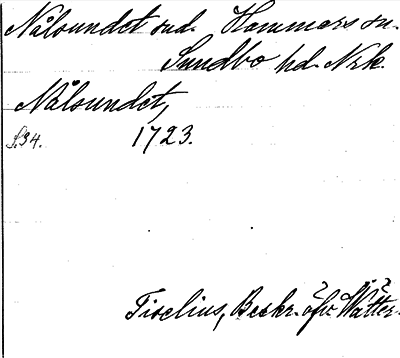 Nålsundet sud. Hammars sn.
Sundbo hd. Nrk.
Nålsundet,
S.34. 1723.
Tiselius, Beskr. öfv. Wätter-